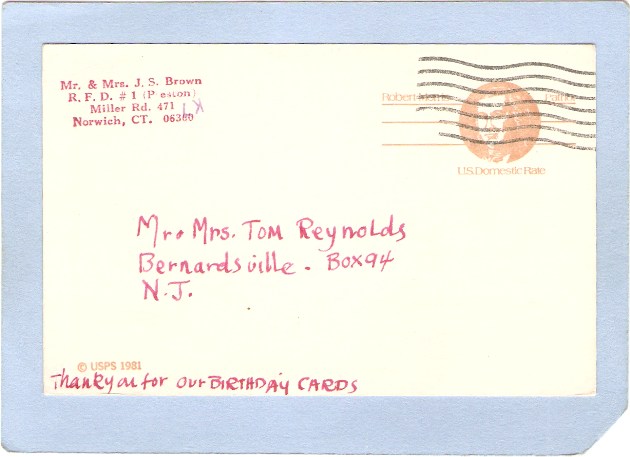 Mr. & Mrs. J. S. Brown
R. F. D. # 1 (Preston)
Miller Rd. 471
Norwich, CT. 06360
Robert Morris Patriot
U.S. Domestic Rate
Mr. Mrs. Tom Reynolds
Bernardsville. Box 94
N.J.
© USPS 1981
Thank you for our BIRTHDAY CARDS